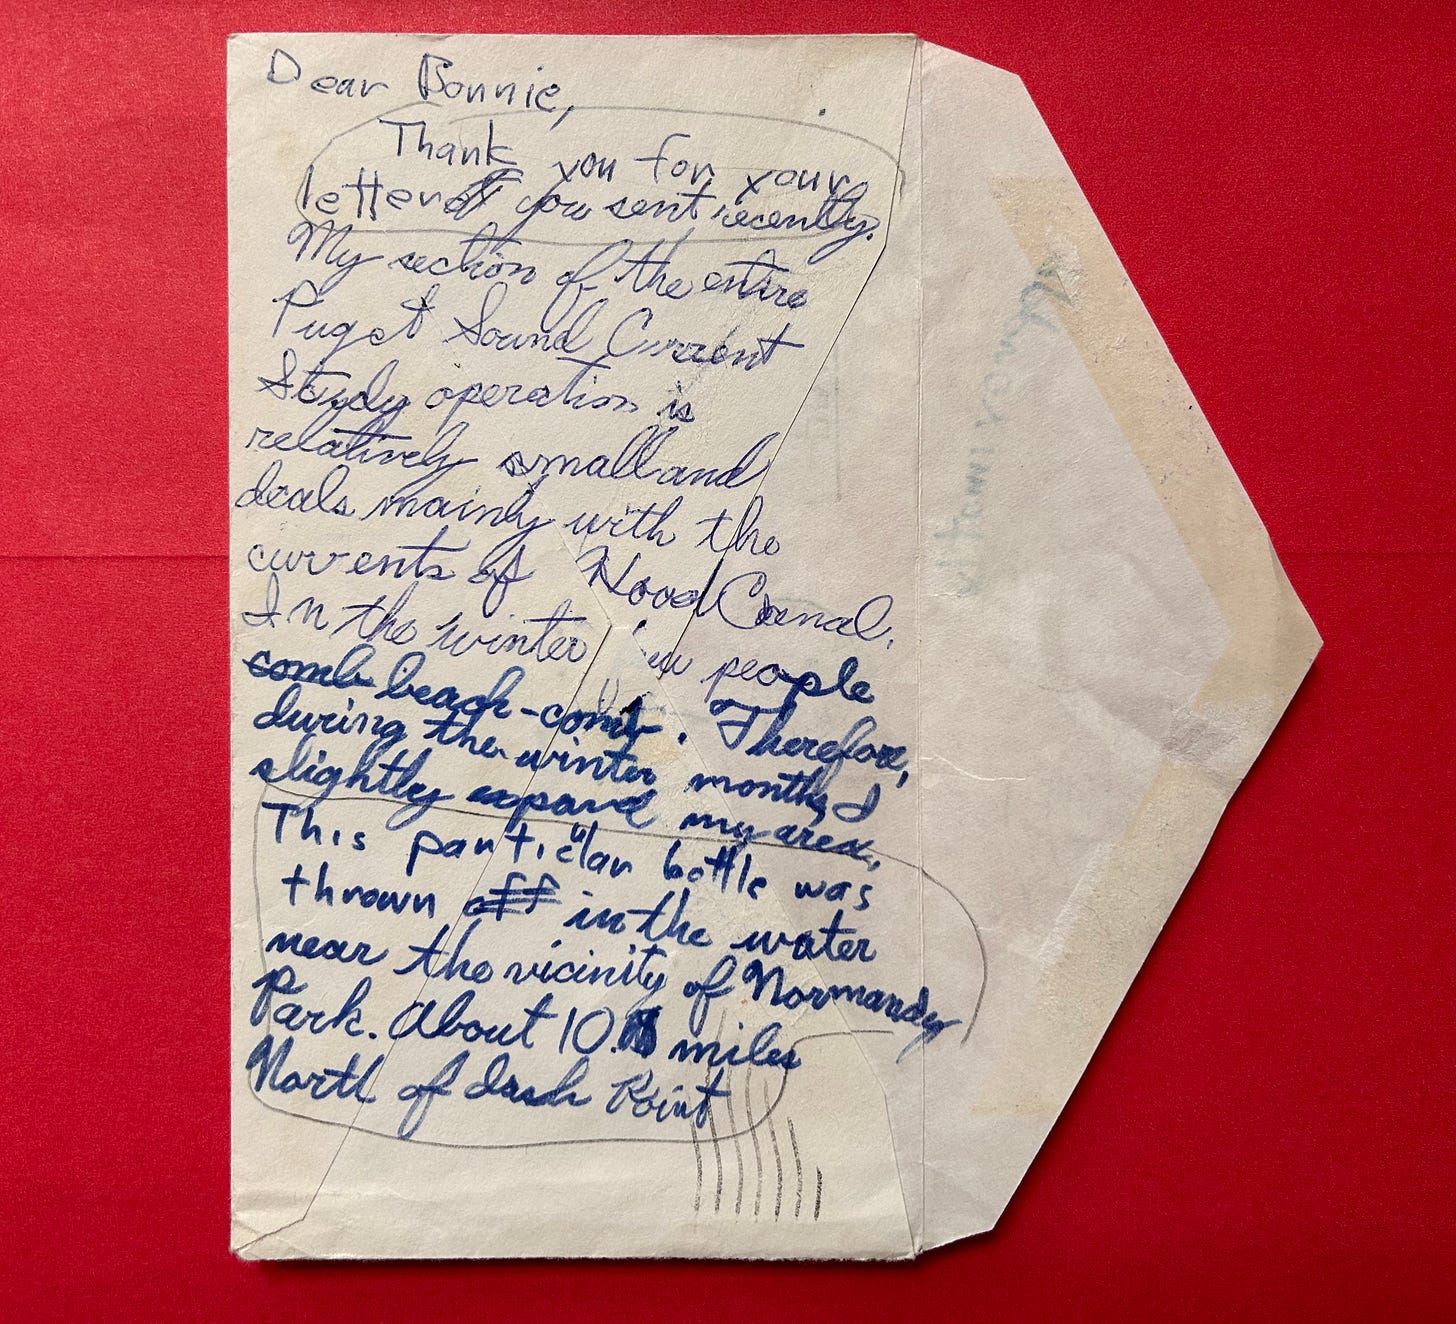 Dear Bonnie,
Thank you for your
letter you sent recently.
My section of the entire
Puget Sound Current
Study operation is
relatively small and
deals mainly with the
currents of Hood Cannal.
In the winter few people
comb beach-comb. Therefore,
during the winter months I
slightly expand my area.
This particular bottle was
thrown off in the water
near the vicinity of Normandy
Park. About 10 miles
North of dash Point